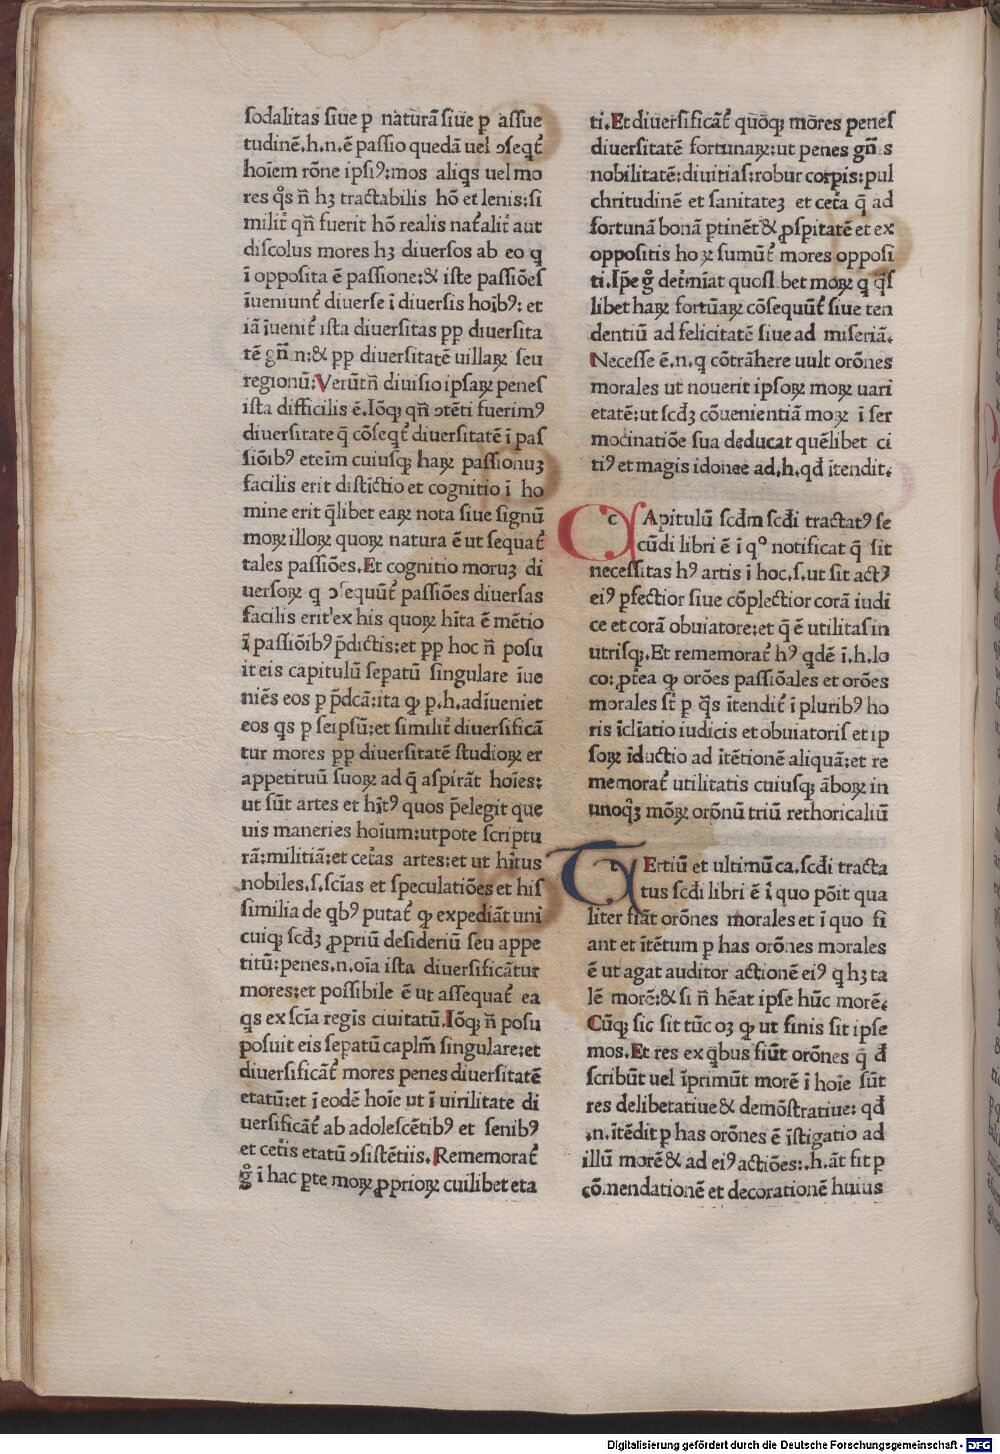 sodalitas siue ꝑ naturã siue ꝑ assue
tudinẽ.h.n.ẽ passio quedã uel ↄseqt᷑
hoĩem rõne ipsiꝰ:mos aliqs uel mo
res qͦs ñ hꝫ tractabilis hõ et lenis:si
milit᷑ qñ fuerit hõ realis nat᷑alit᷑ aut
discolus mores hꝫ diuersos ab eo q
ĩ opposita ẽ passione:& iste passiões
ĩueniunt᷑ diuerse ĩ diuersis hoĩbꝰ: et
iã ĩuenit᷑ ista diuersitas ꝓp diuersita
tẽ gñ̃n:& ꝓp diuersitatẽ uillaꝝ seu
regionũ:Verũtñ diuisio ipsaꝝ penes
ista difficilis ẽ.Iõqꝫ qñ ↄtẽti fuerimꝰ
diuersitate q̃ cõseqt᷑ diuersitatẽ ĩ pas
siõibꝰ eteim cuiusqꝫ haꝝ passionuꝫ
facilis erit distĩctio et cognitio ĩ ho
mine erit q̃libet eaꝝ nota siue signũ
moꝝ illoꝝ quoꝝ natura ẽ ut sequat᷑
tales passiões.Et cognitio moruꝫ di
uersoꝝ q ↄsequũt᷑ passiões diuersas
facilis erit ex his quoꝝ hĩta ẽ mẽtio
ĩ passiõibꝰ p̃dictis:et ꝓp hoc ñ posu
it eis capitulũ sepatũ singulare ĩue
niẽs eos ꝑ p̃dcã:ita ꝙ ꝑ.h.adĩueniet
eos qs ꝑ seipsũ:et similit᷑ diuersificã
tur mores ꝓp diuersitatẽ studioꝝ er
appetituũ suoꝝ ad q̃ aspirãt hoĩes:
ut sũt artes et hĩtꝰ quos p̃elegit que
uis maneries hoĩum:utpote scriptu
rã:militiã:et cet᷑as artes:et ut hĩtus
nobiles.s.scĩas et speculatiões et his
similia de qbꝰ putat᷑ ꝙ expediãt uni
cuiqꝫ scđꝫ ꝓpriũ desideriũ seu appe
titũ:penes.n.oĩa ista diuersificãtur
mores:et possibile ẽ ut assequat᷑ ea
qs ex scĩa regĩs ciuitatũ.Iõqꝫ ñ posu
posuit eis sepatũ caplm̃ singulare:et
diuersificãt᷑ mores penes diuersitatẽ
etatũ:et ĩ eodẽ hoĩe ut ĩ uirilitate di
uersificãt᷑ ab adolescẽtibꝰ et senibꝰ
et cet᷑is etatũ ↄsistẽtiis.Rememorat᷑
gͦ ĩ hac ꝑte moꝝ ꝓprioꝝ cuilibet eta
ti.Et diuersificãt᷑ quõqꝫ mõres penes
diuersitatẽ fortunaꝝ:ut penes gñ̃s
nobilitatẽ:diuitias:robur corpis:pul
chritudinẽ et sanitateꝫ et cet᷑a q̃ ad
fortunã bonã ꝑtinẽt & ꝓspitatẽ et ex
oppositis hoꝝ sumũt᷑ mores opposi
ti.Ip̃e gͦ det᷑mĩat quosl bet moꝝ q q̃s
libet haꝝ fortũaꝝ cõsequũt᷑ siue ten
dentiũ ad felicitatẽ siue ad miseriã.
Necesse ẽ.n.q cõtrãhere uult orõnes
morales ut nouerit ipsoꝝ moꝝ uari
etatẽ:ut scđꝫ cõuenientiã moꝝ ĩ ser
mocinatiõe sua deducat quẽlibet ci
tiꝰ et magis idonee ad.h.qđ ĩtendit.
c Apitulũ scđm scđi tractatꝰ se
cũdi libri ẽ ĩ qͦ notificat q̃ sit
necessitas hꝰ artis ĩ hoc.s.ut sit actꝰ
eiꝰ ꝑfectior siue cõplectior corã iudi
ce et corã obuiatore:et q̃ ẽ utilitas in
utrisqꝫ.Et rememorat᷑ hꝰ qdẽ ĩ.h.lo
co:ꝓt᷑ea ꝙ orões passiõales et orões
morales st᷑ ꝑ q̃s ĩtendit᷑ ĩ pluribꝰ ho
ris ĩclĩatio iudicis et obuiatoris et ip
soꝝ ĩductio ad ĩtẽtionẽ aliquã:et re
memorat᷑ utilitatis cuiusqꝫ ãboꝝ in
unoqꝫ̃ mõꝝ orõnũ triũ rethoricaliũ
t Ertiũ et ultimũ ca.scđi tracta
tus scđi libri ẽ ĩ quo põit qua
liter fiãt orõnes morales et ĩ quo fi
ant et ĩtẽtum ꝑ has orõnes morales
ẽ ut agat auditor actionẽ eiꝰ q hꝫ ta
lẽ morẽ:& si ñ hẽat ipse hũc morẽ.
Cũqꝫ sic sit tũc oꝫ ꝙ ut finis sit ipse
mos.Et res ex qbus fiũt orõnes q̃ đ
scribũt uel ĩprimũt morẽ ĩ hoĩe sũt
res delibetatiue & demõstratiue: qđ
.n.ĩtẽdit ꝑ has orõnes ẽ ĩstigatio ad
illũ morẽ & ad eiꝰ actiões:.h.ãt fit ꝑ
cõmendationẽ et decorationẽ huius
Digitalisierung gefördert durch die Deutsche Forschungsgemeinschaft - DFG